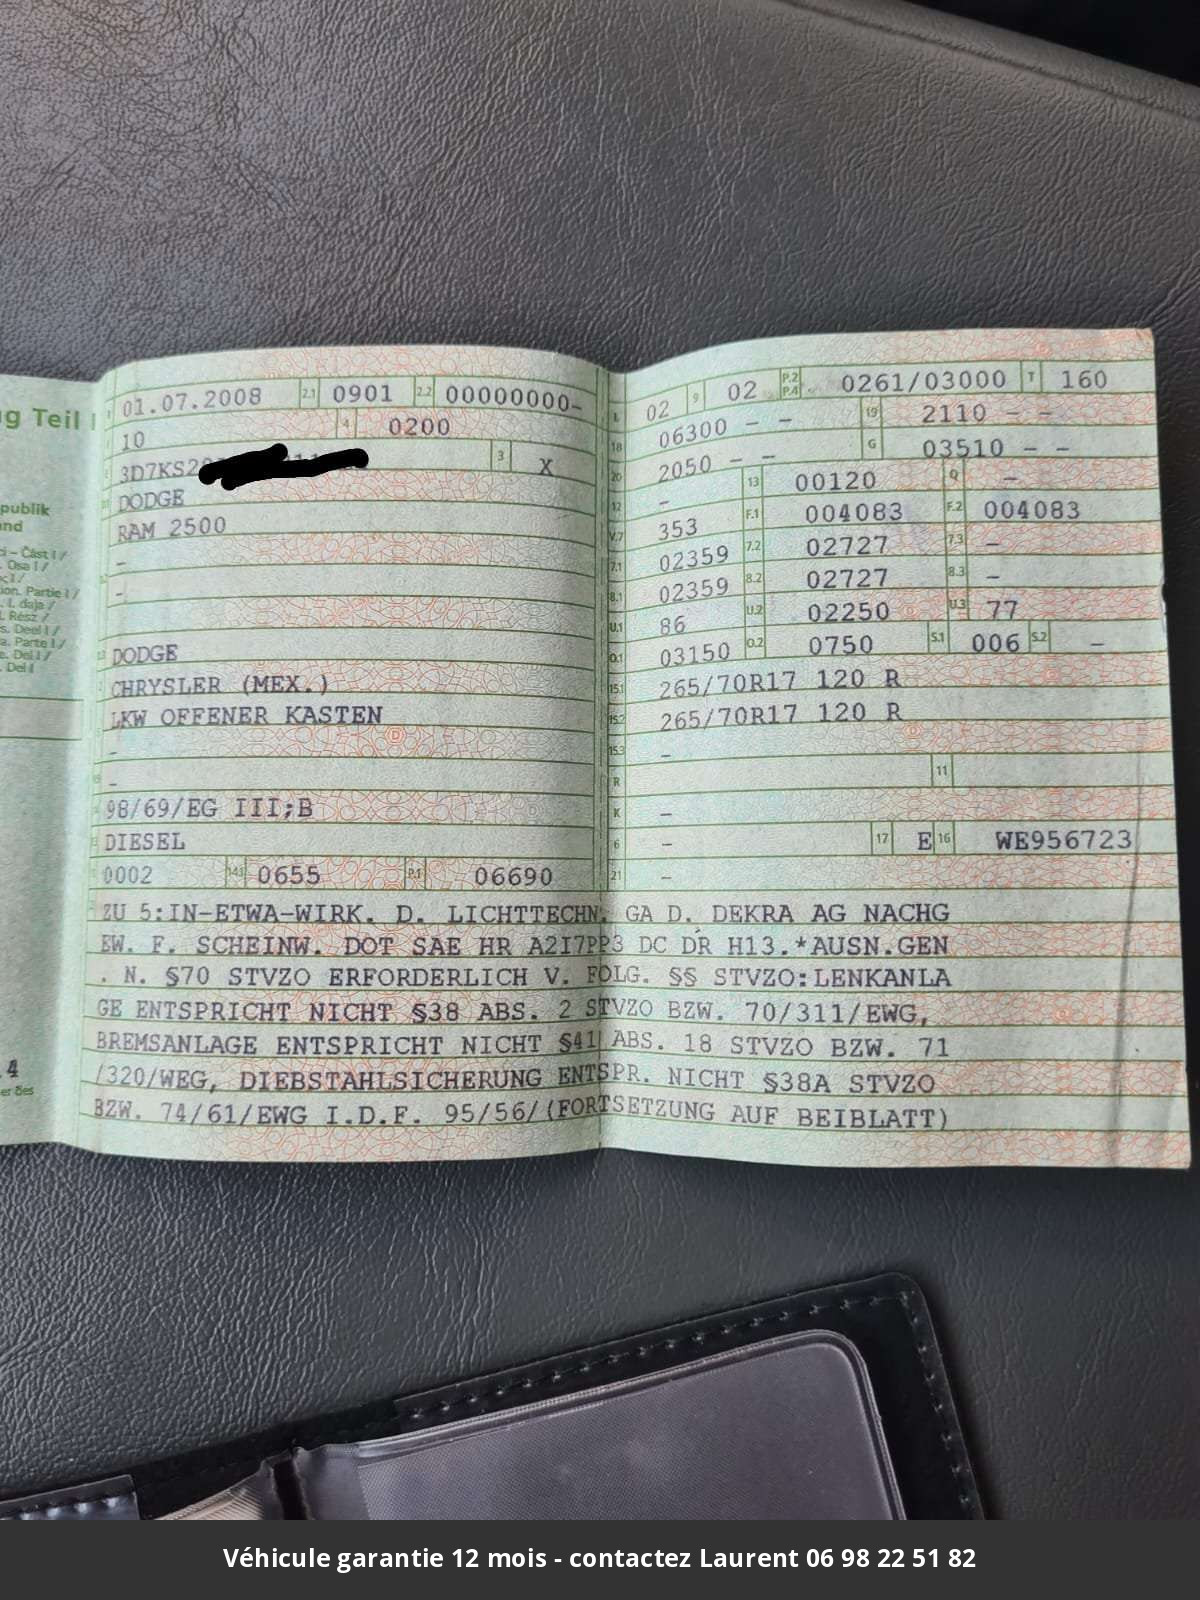 g Teil I
publik
nd
ci – Část I /
. Osa I /
ion. Partie I /
. I. daļa /
I. Rész /
s. Deel I /
a. Parte I /
e. Del I /
. Del I
4
er des
01.07.2008 2.1 0901 2.2 00000000-
10 4 0200
3D7KS2 3 X
DODGE
RAM 2500
-
-
DODGE
CHRYSLER (MEX.)
LKW OFFENER KASTEN
-
-
98/69/EG III;B
DIESEL
0002 14.1 0655 P.1 06690
L 02 9 02 P.2 P.4 0261/03000 T 160
18 06300 - - 19 2110 - -
20 2050 - - G 03510 - -
12 - 13 00120 Q -
V.7 353 F.1 004083 F.2 004083
7.1 02359 7.2 02727 7.3 -
8.1 02359 8.2 02727 8.3 -
U.1 86 U.2 02250 U.3 77
O.1 03150 O.2 0750 S.1 006 S.2 -
15.1 265/70R17 120 R
15.2 265/70R17 120 R
15.3 -
R 11
K -
6 - 17 E 16 WE956723
21 -
ZU 5:IN-ETWA-WIRK. D. LICHTTECHN. GA D. DEKRA AG NACHG
EW. F. SCHEINW. DOT SAE HR A2I7PP3 DC DR H13.*AUSN.GEN
. N. §70 STVZO ERFORDERLICH V. FOLG. §§ STVZO:LENKANLA
GE ENTSPRICHT NICHT §38 ABS. 2 STVZO BZW. 70/311/EWG,
BREMSANLAGE ENTSPRICHT NICHT §41 ABS. 18 STVZO BZW. 71
/320/WEG, DIEBSTAHLSICHERUNG ENTSPR. NICHT §38A STVZO
BZW. 74/61/EWG I.D.F. 95/56/(FORTSETZUNG AUF BEIBLATT)
Véhicule garantie 12 mois - contactez Laurent 06 98 22 51 82